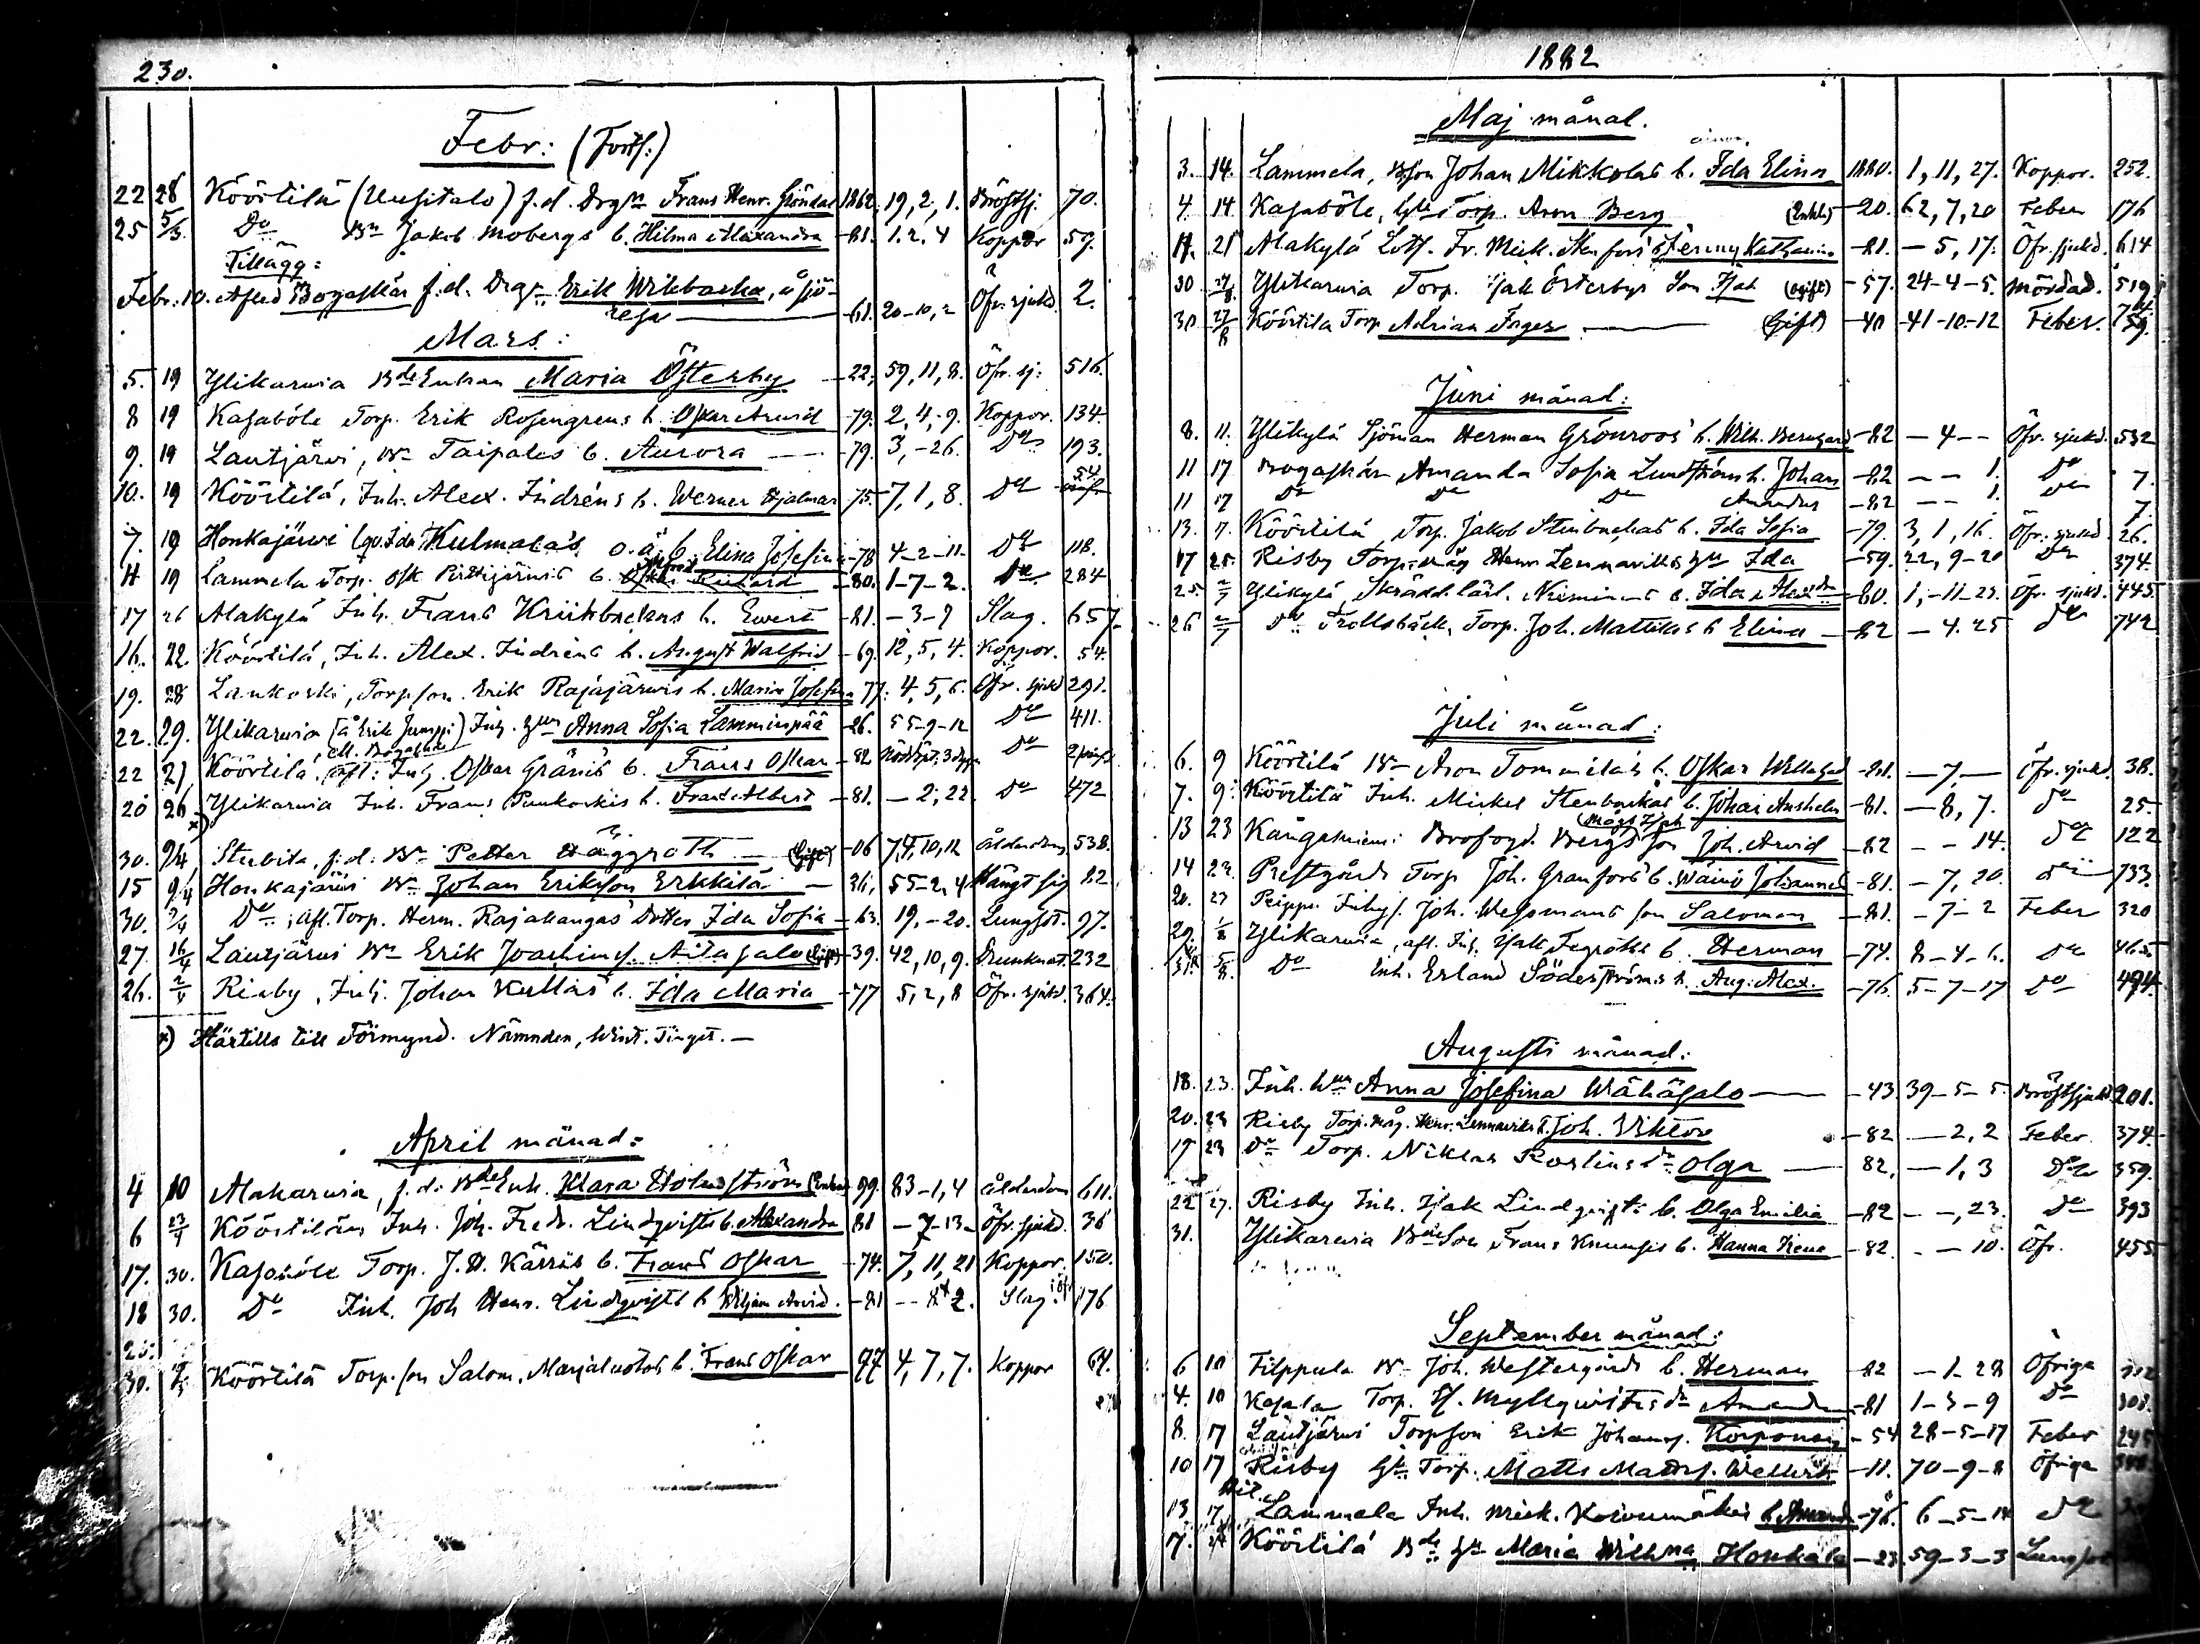 230.
Febr: (Forts:)
22 28 Köörtilä (Uusitalo) f.d. Drgn Frans Henr. Gröndal 1862. 19, 2, 1. Bröstsj. 70.
25 5/3. Do Bn Jakob Mobergs b. Hilma Alexandra -81. 1. 2. 4 Koppor 59.
Tillägg:
Febr. 10. Afled Bogaskär f.d. Drgn. Erik Wikbacka, å sjö-
resa -61. 20-10, 2 Öfr. sjukd. 2.
Mars:
5. 19 Ylikarvia Bde Enkan Maria Österby -22, 59, 11, 8. Öfr. sj: 516.
8 19 Kasaböle Torp. Erik Rosengrens b. Oskar Arvid -79. 2, 4, -9. Koppor. 134
9. 19 Lautjärvi, Bn Taipales b. Aurora -79. 3, -26. Do 193.
10. 19 Köörtilä, Inh. Alex. Indréns b. Werner Hjalmar -75- 7, 1, 8. Do 54
7. 19 Honkajärvi Kulmalas o.ä. b. Elina Josefina -78 4-2-11. Do 118.
11 19 Lammela Torp. Osk b. Rikard -80. 1-7-2. Do 284
17 26 Alakylä Inh. Frans Kriikbackas b. Evert -81. -3-9 Slag. 657.
16. 22. Köörtilä, Inh. Alex. Indréns b. August Walfrid -69. 12, 5, 4. Koppor. 54.
19. 28 Lankoski, Torpson Erik Rajajärvis b. Maria Josefina 77. 4, 5, 6. Öfr. sjukd 291.
22. 29. Ylikarvia (å Erik Jumppi) Inh. hun Anna Sofia Lamminpää -26. 55-9-12 Do 411.
22 27 Köörtilä, Inh. Oskar Gränis b. Frans Oskar -82 Nöddöpt, 3 dygn Do
20 26 Ylikarvia Inh. Frans Punkoskis b. Frans Albert -81. -2, 22. Do 472
x)
30. 9/4 Stubita, f.d. Bn Petter Häggroth (Gift) -06 74, 10, 12 ålderdom, 538.
15 9/4 Honkajärvi Bn Johan Eriksson Erkkilä 26, 55-2, 4 Hängt sig 82.
30. 9/4 Do, afl. Torp. Herm. Rajakangas Dotter Ida Sofia -63. 19, -20. Lungsot. 97.
27. 16/4 Lautjärvi Bn Erik Joachims. Aitasalo (Gift) -39. 42, 10, 9. Drunknat. 232
26. 2/4 Risby, Inh. Johan Kullas b. Ida Maria -77 5, 2, 8 Öfr. sjukd. 364.
x) Härtills till Förmynd. Nämnden, Wint. Tinget. —
April månad:
4 10 Alakarvia, f.d. Bde Enk. Klara Holmström (Enka) 99. 83-1, 4 ålderdom 611.
6 23/4 Köörtiläs Inh. Joh. Fredr. Lindqvists b. Alexandra 81 -7-13- Öfr. sjukd. 36
17. 30. Kasaböle Torp. J. H. Kärriis b. Frans Oskar -74. 7, 11, 21 Koppor. 150.
18 30. Do Inh. Joh Henr. Lindqvists b Viljam Arvid. -81 -- 8 2. Slag. 176
25.
30. Köörtilä Torp. son Salom. Marjaluotos b. Frans Oskar 77 4, 7, 7. Koppor 64.
1882
Maj månad.
3. 14. Lammela, Bson Johan Mikkolas b. Ida Elina 1880. 1, 11, 27. Koppor. 252.
4 14 Kasaböle, Gla Torp. Aron Berg (Enkl.) -20. 62, 7, 20 Feber 176
11. 21 Alakylä Lots. Fr. Mick. Stenfors' Fenny Katharina -81. - 5, 17: Öfr. sjukd. 614
30 27/8. Ylikarvia Torp. Isak Österbys Son Isak (ogift) -57. 24-4-5. mördad. 519
30 27/8 Köörtila Torp Adrian Fager (Gift) -40 41-10-12 Feber. 59.
Juni månad:
8. 11. Ylikylä Sjöman Herman Grönroos' b. Wilh. Bernhard -82 -4-- Öfr. sjukd. 532
11 17 Bogaskär Amanda Sofia Lundströms b. Johan -82 -- 1. Do 7.
11 17 Do Do Do Amandus -82 -- 1. Do 7.
13. 7. Köörtilä, Torp. Jakob Stenbackas b. Ida Sofia -79. 3, 1, 16. Öfr. sjukd. 26.
17 25. Risby Torp. måg Henr Lennavikts hu Ida -59. 22, 9-20 Do 374.
25. 2/7 Ylikylä, Skräddlärl. Nieminens b. Ida Alexdra -80. 1,-11-23. Öfr. sjukd. 445.
26 2/7 Do Trollsbäck, Torp. Joh. Mattilas b Elina -82 -4. 25 Do 742
Juli månad:
6. 9 Köörtilä Bn Aron Tommilas b. Oskar Willehad -81. -7,- Öfr. sjukd. 38.
7. 9. Köörtilä Inh. Mickel Stenbackas b. Johan Anshelm -81. -8, 7. Do 25-
13 23 Kangasniemi Brofogd. Bergs son Joh. Arvid -82 -- 14. Do 122
14 23. Prestgårds Torp Joh. Granfors' b. Wäinö Johannes -81. -7, 20. Do 733.
20. 23 Peippu Inhys. Joh. Wessmans son Salomon -81. -7-2 Feber 320
29. 1/8 Ylikarvia, afl. Inh. Isak Tegroths b. Herman -74. 8-4-6. Do 465
31. 5/8. Do Inh. Erland Söderströms b. Aug. Alex. -76. 5-7-17 Do 494
Augusti månad:
18. 23. Inh. hun Anna Josefina Wähäsalo -43 39-5-5. Bröstsjukd 201.
20. 23 Risby Torp. måg. Henr. Lennavikts b. Joh. Viktor -82 -2, 2 Feber. 374.
17 23 Do Torp. Niklas Roslins dr Olga 82. -1, 3 Do 359.
22 27. Risby Inh. Isak Lindqvists b. Olga Emilia -82 --, 23. Do 393
31. Ylikarvia Bde Son Frans Knuusis b. Hanna Irene -82. --10. Öfr. 455
September månad:
6 10 Filppula Bn Joh. Westergårds b. Herman -82 -1-28 Öfriga 312
4. 10 Kasala Torp. Is. Myllqvists dr Amanda -81 1-3-9 Do 303.
8. 17 Lautjärvi Torpson Erik Johans. Korponen -54 28-5-17 Feber 245
10 17 Risby Gla Torp. Matts Matts. Wellroth -11. 70-9-8 Öfriga
13 17 Lammela Inh. Mick. Koivumäkis b. Amanda -76. 6-5-14 Do
17. Köörtilä Bde hu Maria Wilhma Honkala -23 59-3-3 Lungsot